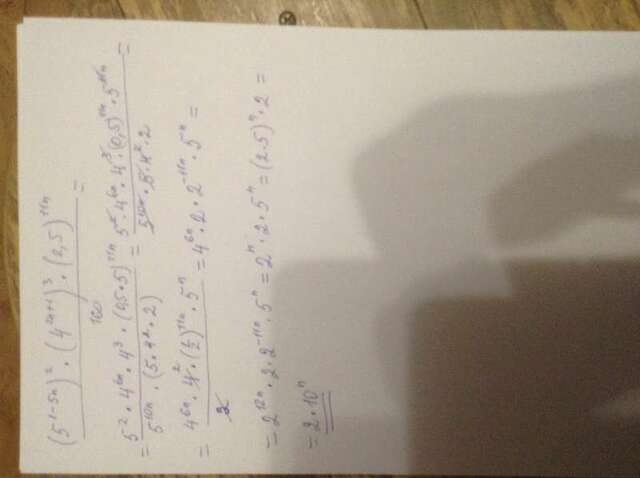 (5^{1-5n})^2 · (4^{2n+1})^3 · (2,5)^{11n} / 160 =
= 5^2 · 4^{6n} · 4^3 · (0,5 · 5)^{11n} / 5^{10n} · (5 · 4^2 · 2) = 5^2 · 4^{6n} · 4^3 · (0,5)^{11n} · 5^{11n} / 5^{10n} · 5 · 4^2 · 2 =
= 4^{6n} · 4^2 · (1/2)^{11n} · 5^n / 2 = 4^{6n} · 2 · 2^{-11n} · 5^n =
= 2^{12n} · 2 · 2^{-11n} · 5^n = 2^n · 2 · 5^n = (2 · 5)^n · 2 =
= 2 · 10^n